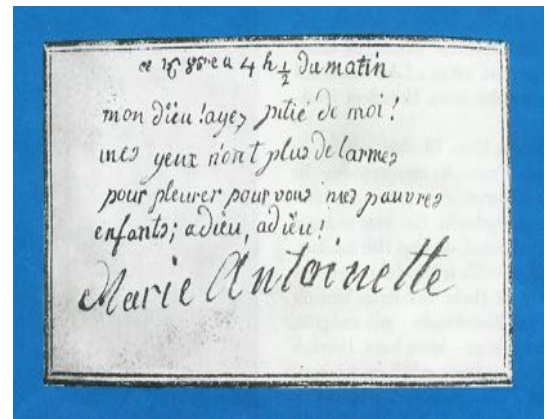 ce 16 8bre a 4 h ½ du matin
mon dieu ! ayez pitié de moi !
mes yeux n'ont plus de larmes
pour pleurer pour vous mes pauvres
enfants ; adieu, adieu !
Marie Antoinette